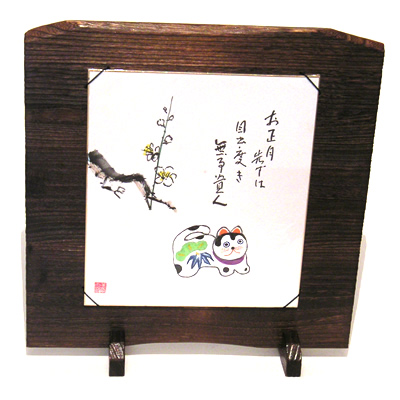 お正月
先ずは
目出度き
無事貴人